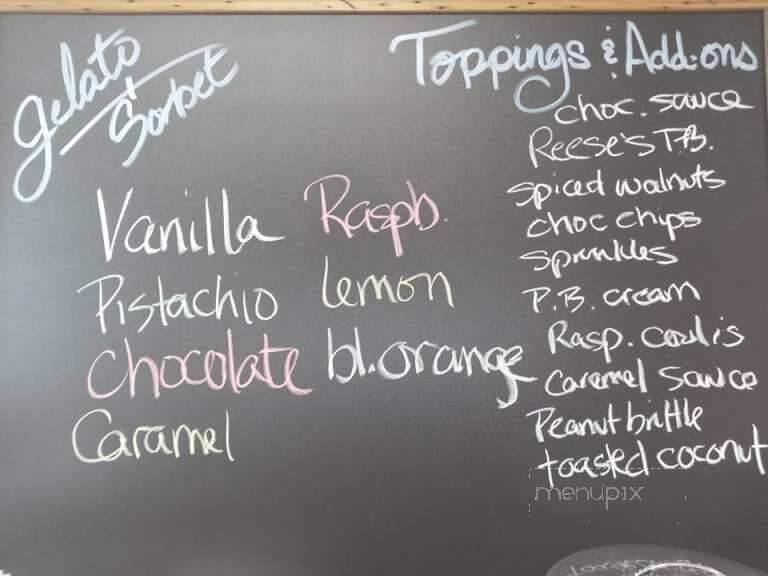 Gelato
& Sorbet
Vanilla
Pistachio
Chocolate
Caramel
Raspb.
lemon
bl.orange
Toppings & Add-ons
choc. sauce
Reese's P.B.
spiced walnuts
choc chips
sprinkles
P.B. cream
Rasp. coulis
Caramel sauce
Peanut brittle
toasted coconut
menupix